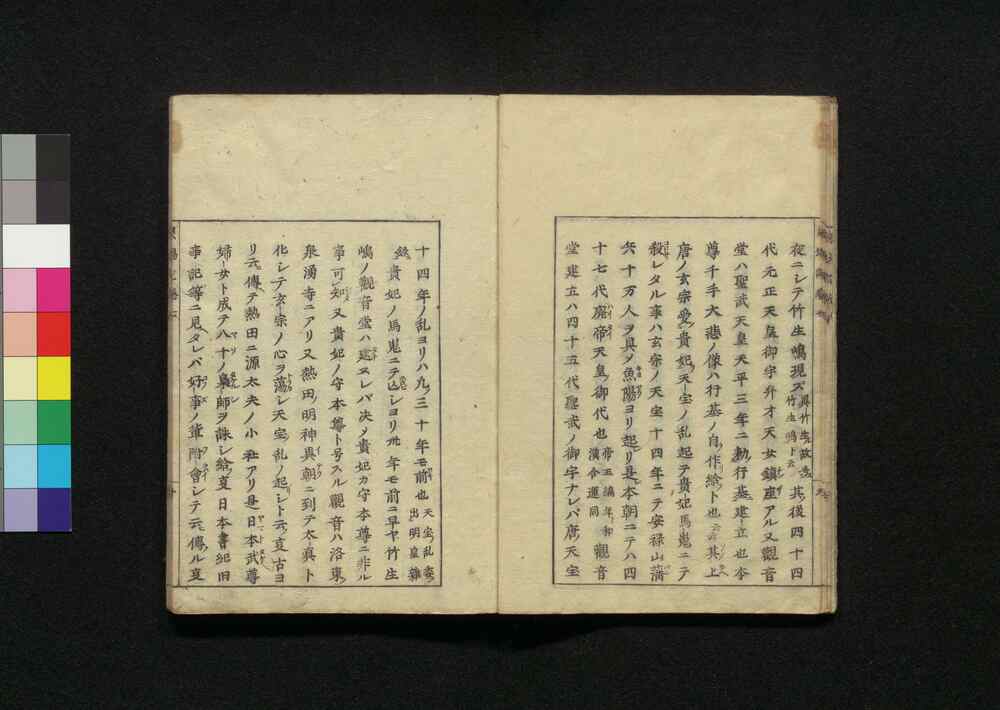 夜ニシテ竹生嶋現ズ 異竹生 故ニ 竹生嶋ト云 其後四十四
代元正天皇御宇弁才天女鎮座アル又観音
堂ハ聖武天皇天平三年ニ勅行基建立也本
尊千手大悲ノ像ハ行基ノ自作給ト也 云云 其上
唐ノ玄宗愛貴妃天宝ノ乱起テ貴妃馬嵬ニテ
殺レタル事ハ玄宗ノ天宝十四年ニテ安禄山
六十万人ヲ具メ漁陽ヨリ起リ是本朝ニテハ四
十七代廃帝天皇御代也 帝王編年和漢合運同 観音
堂建立ハ四十五代聖武ノ御宇ナレバ唐天宝
十四年ノ乱ヨリハ九三十年モ前也 天宝乱 出明皇雑
録 貴妃ノ馬嵬ニテ亡シヨリ卅年モ前ニ早ヤ竹生
嶋ノ観音堂ハ建ヌレバ决メ貴妃カ守本尊ニ非ル
事可知又貴妃ノ守本尊ト号スル観音ハ洛東
泉湧寺ニアリ又熱田明神異朝ニ到テ太真ト
化シテ玄宗ノ心ヲ蕩シ天宝乱ノ起シト云亥古ヨ
リ云傳テ熱田ニ源太夫ノ小社アリ是日本武尊
婦女ト成テ八十ノ梟師ヲ誅シ給亥日本書紀旧
事記等ニ見タレバ好事ノ輩附會シテ云傳ル亥